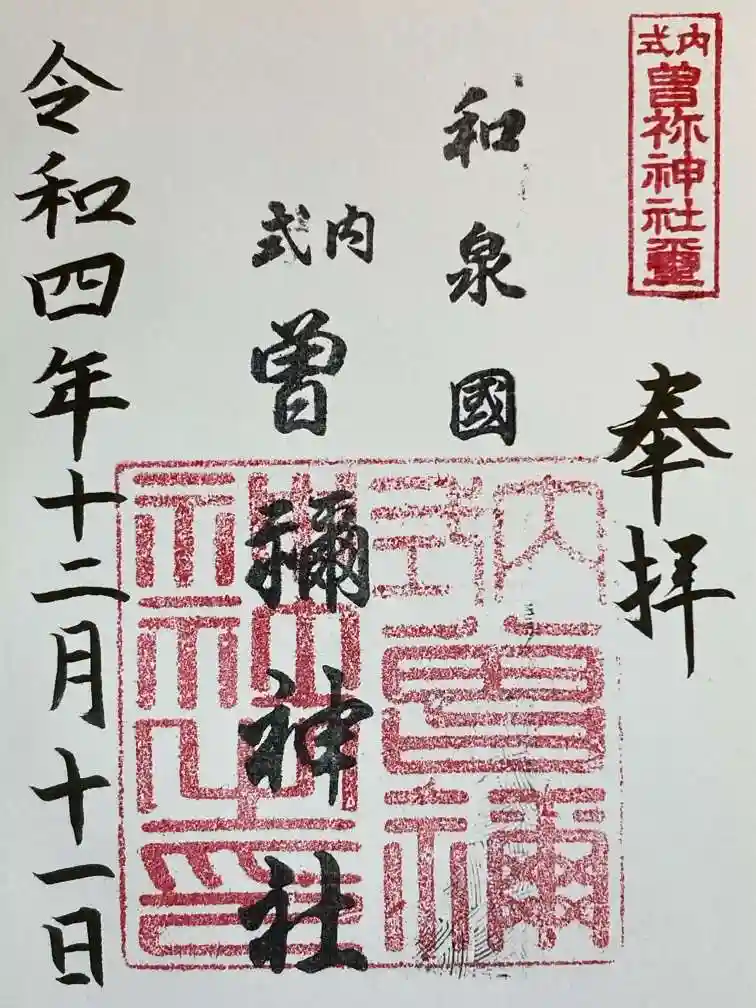 式内
曽祢神社璽
奉拝
和泉國
式内
曽禰神社
式内曽禰神社之印
令和四年十二月十一日